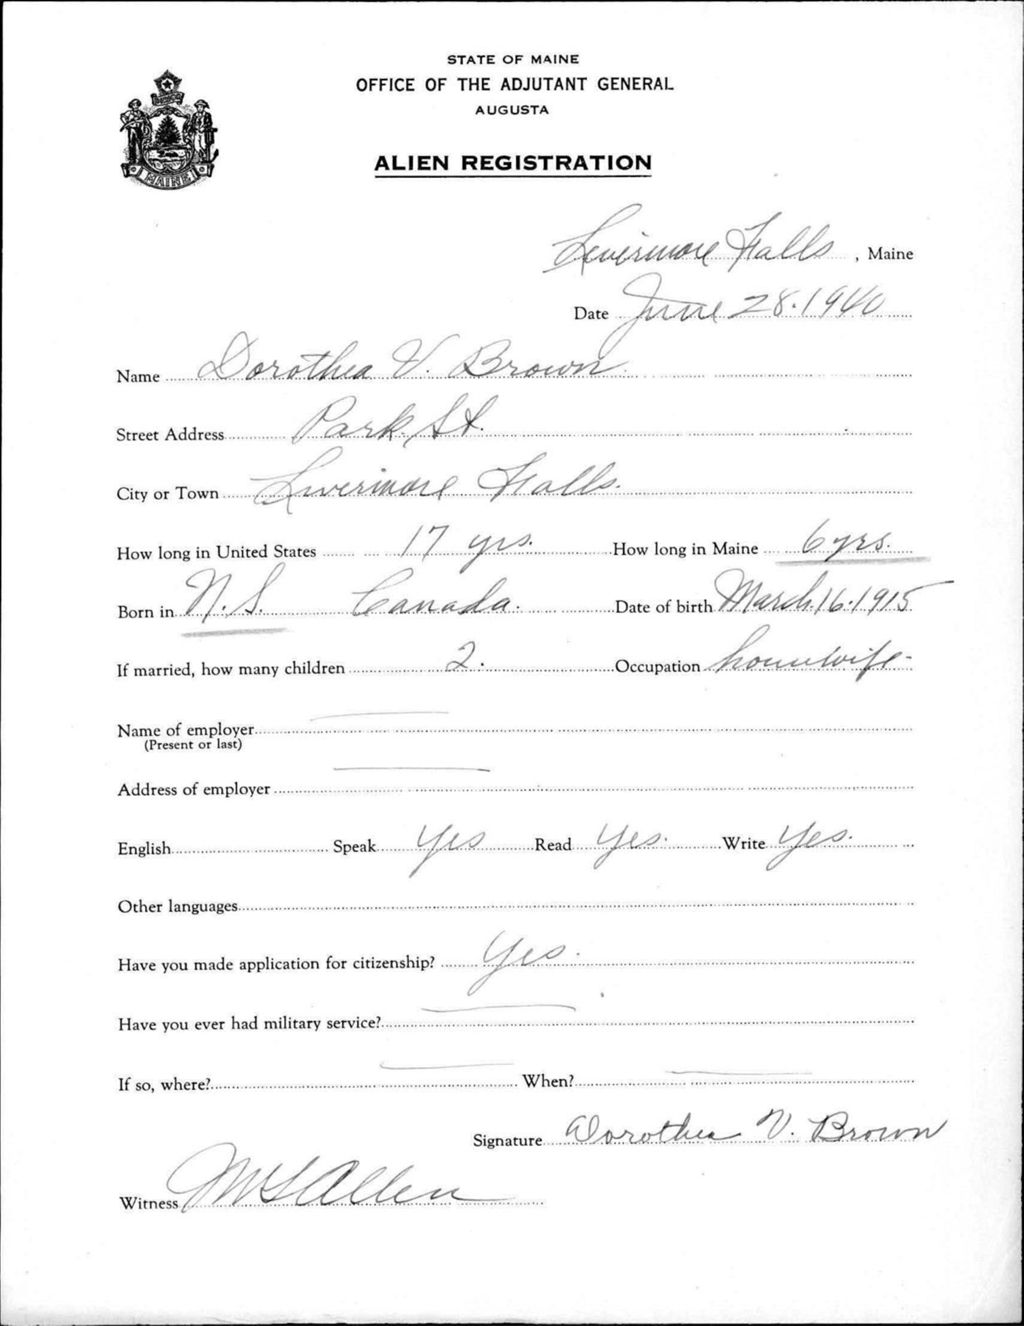 STATE OF MAINE
OFFICE OF THE ADJUTANT GENERAL
AUGUSTA
ALIEN REGISTRATION
MAINE
Livermore Falls, Maine
Date June 28. 1940
Name Dorothea V. Brown
Street Address Park St.
City or Town Livermore Falls.
How long in United States 17 yrs. How long in Maine 6 yrs.
Born in N.S. Canada. Date of birth March. 16. 1915
If married, how many children 2. Occupation housewife-
Name of employer
(Present or last)
Address of employer
English Speak Yes Read Yes. Write Yes.
Other languages
Have you made application for citizenship? Yes.
Have you ever had military service?
If so, where? When?
Signature Dorothea V. Brown
Witness Allen